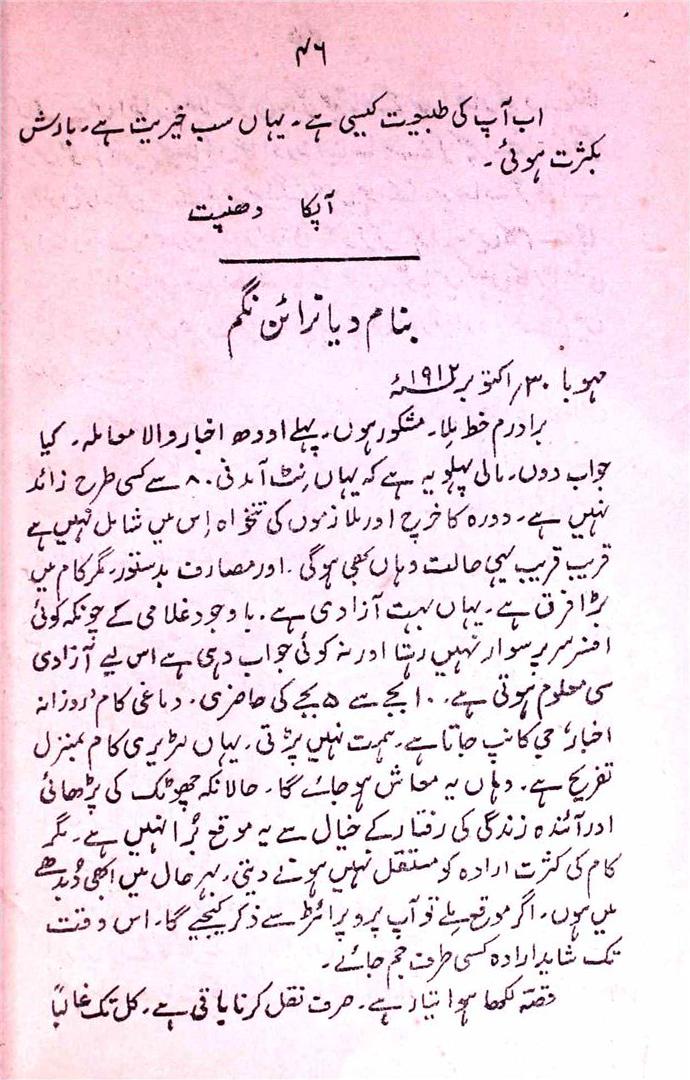 ۴۶
اب آپ کی طبیعت کیسی ہے۔ یہاں سب خیریت ہے۔ بارش
بکثرت ہوئی۔
آپکا دھنپت
بنام دیا نرائن نگم
مہوبا ۳۰؍ اکتوبر ۱۹۱۲ء
برادرم خط ملا۔ مشکور ہوں۔ پہلے اودھ اخبار والا معاملہ۔ کیا
جواب دوں۔ مالی پہلو یہ ہے کہ یہاں نٹ آمدنی ۸۰ سے کسی طرح زائد
نہیں ہے۔ دورہ کا خرچ اور ملازموں کی تنخواہ اِس میں شامل نہیں ہے
قریب قریب یہی حالت وہاں بھی ہوگی۔ اور مصارف بدستور۔ مگر کام میں
بڑا فرق ہے۔ یہاں بہت آزادی ہے۔ باوجود غلامی کے چونکہ کوئی
افسر سر پر سوار نہیں رہتا اور نہ کوئی جواب دہی ہے اس لیے آزادی
سی معلوم ہوتی ہے۔ ۱۰ بجے سے ۵ بجے کی حاضری۔ دماغی کام، روزانہ
اخبار، جی کانپ جاتا ہے۔ ہمت نہیں پڑتی۔ یہاں لٹریری کام بمنزل
تفریح ہے۔ وہاں یہ معاش ہو جائے گا۔ حالانکہ چھوٹک کی پڑھائی
اور آئندہ زندگی کی رفتار کے خیال سے یہ موقع بُرا نہیں ہے۔ مگر
کام کی کثرت ارادہ کو مستقل نہیں ہونے دیتی۔ بہر حال میں ابھی دُبدھے
میں ہوں۔ اگر موقع ملے تو آپ پروپرائٹر سے ذکر کیجیے گا۔ اس وقت
تک شاید ارادہ کسی طرف جم جائے۔
قصّہ لکھا ہوا تیار ہے۔ صرف نقل کرنا باقی ہے۔ کل تک غالباً